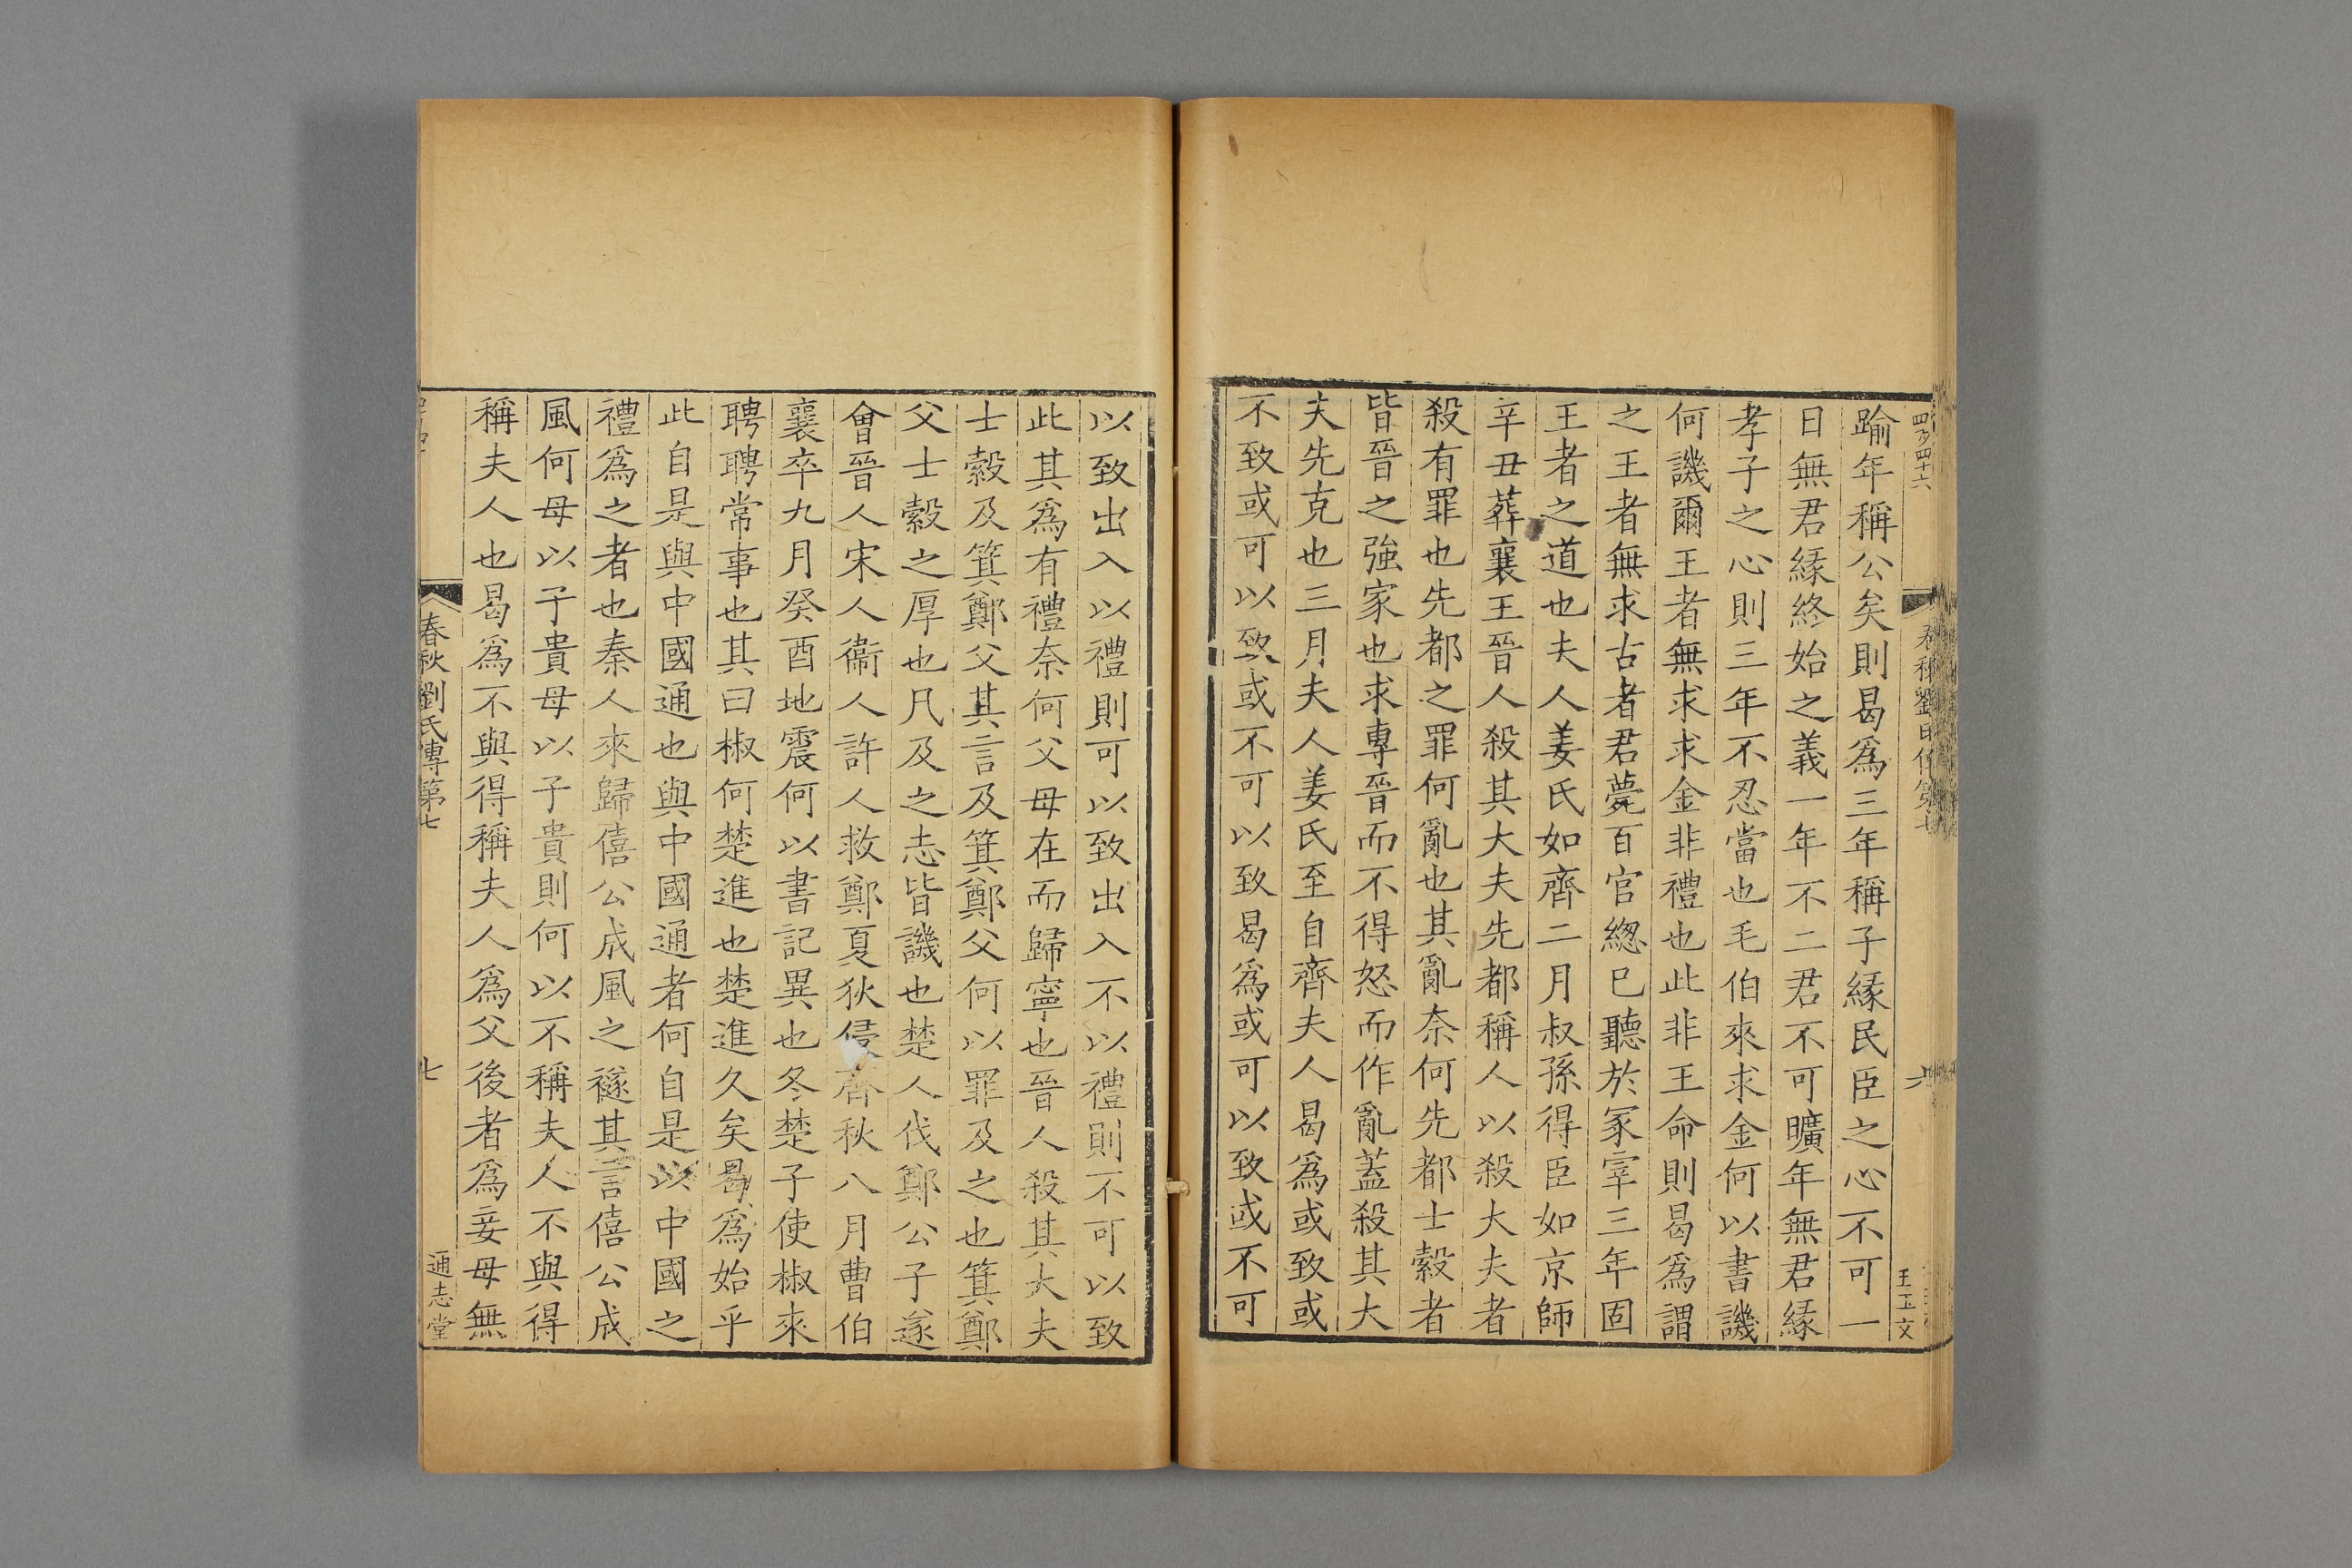 踰年稱公矣則曷爲三年稱子緣民臣之心不可一
日無君緣終始之義一年不二君不可曠年無君緣
孝子之心則三年不忍當也毛伯來求金何以書譏
何譏爾王者無求求金非禮也此非王命則曷爲謂
之王者無求古者君薨百官緫巳聽於冢宰三年固
王者之道也夫人姜氏如齊二月叔孫得臣如京師
辛丑葬襄王晉人殺其大夫先都稱人以殺大夫者
殺有罪也先都之罪何亂也其亂奈何先都士縠者
皆晉之強家也求專晉而不得怒而作亂蓋殺其大
夫先克也三月夫人姜氏至自齊夫人曷爲或致或
不致或可以致或不可以致曷爲或可以致或不可
以致出入以禮則可以致出入不以禮則不可以致
此其爲有禮奈何父母在而歸寧也晉人殺其大夫
士縠及箕鄭父其言及箕鄭父何以罪及之也箕鄭
父士縠之厚也凡及之志皆譏也楚人伐鄭公子遂
會晉人宋人衞人許人救鄭夏狄侵齊秋八月曹伯
襄卒九月癸酉地震何以書記異也冬楚子使椒來
聘聘常事也其曰椒何楚進也楚進久矣曷爲始乎
此自是與中國通也與中國通者何自是以中國之
禮爲之者也秦人來歸僖公成風之襚其言僖公成
風何母以子貴母以子貴則何以不稱夫人不與得
稱夫人也曷爲不與得稱夫人爲父後者爲妾母無
春秋劉氏傳第七
七
通志堂